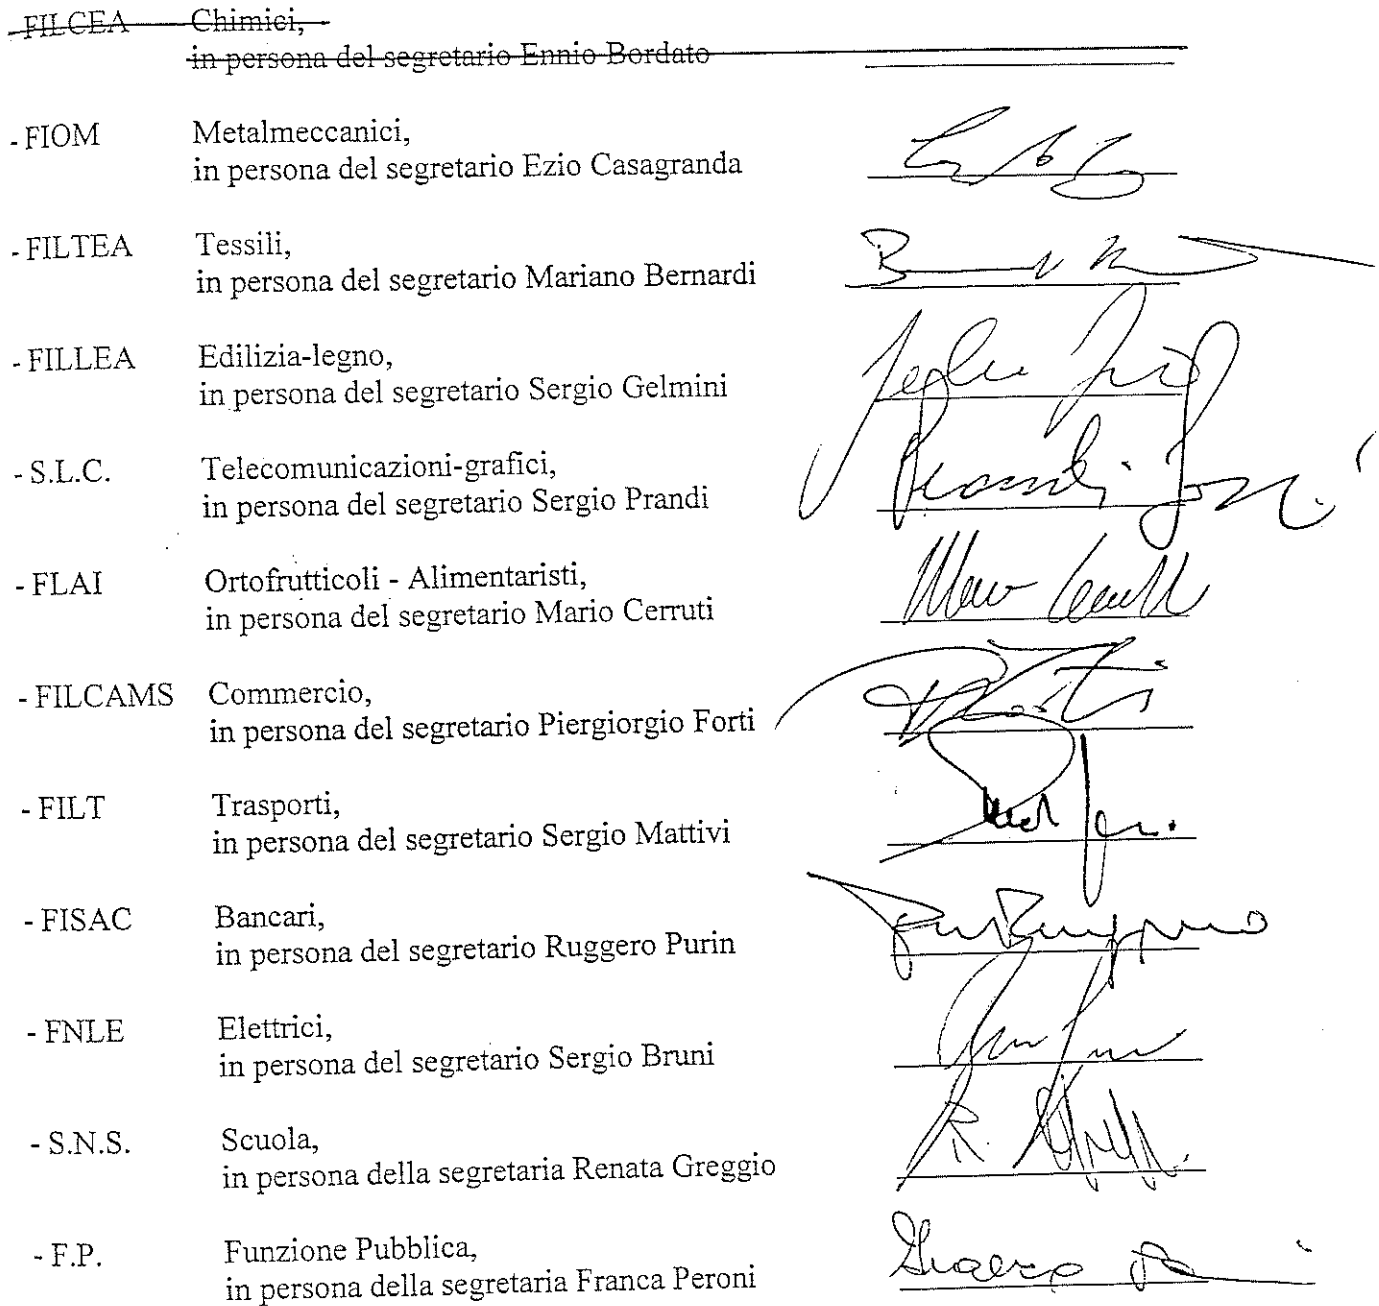 -FILCEA Chimici,
in persona del segretario Ennio Bordato
- FIOM Metalmeccanici,
in persona del segretario Ezio Casagranda
- FILTEA Tessili,
in persona del segretario Mariano Bernardi
- FILLEA Edilizia-legno,
in persona del segretario Sergio Gelmini
- S.L.C. Telecomunicazioni-grafici,
in persona del segretario Sergio Prandi
Prandi
- FLAI Ortofrutticoli - Alimentaristi,
in persona del segretario Mario Cerruti
- FILCAMS Commercio,
in persona del segretario Piergiorgio Forti
- FILT Trasporti,
in persona del segretario Sergio Mattivi
- FISAC Bancari,
in persona del segretario Ruggero Purin
- FNLE Elettrici,
in persona del segretario Sergio Bruni
- S.N.S. Scuola,
in persona della segretaria Renata Greggio
- F.P. Funzione Pubblica,
in persona della segretaria Franca Peroni